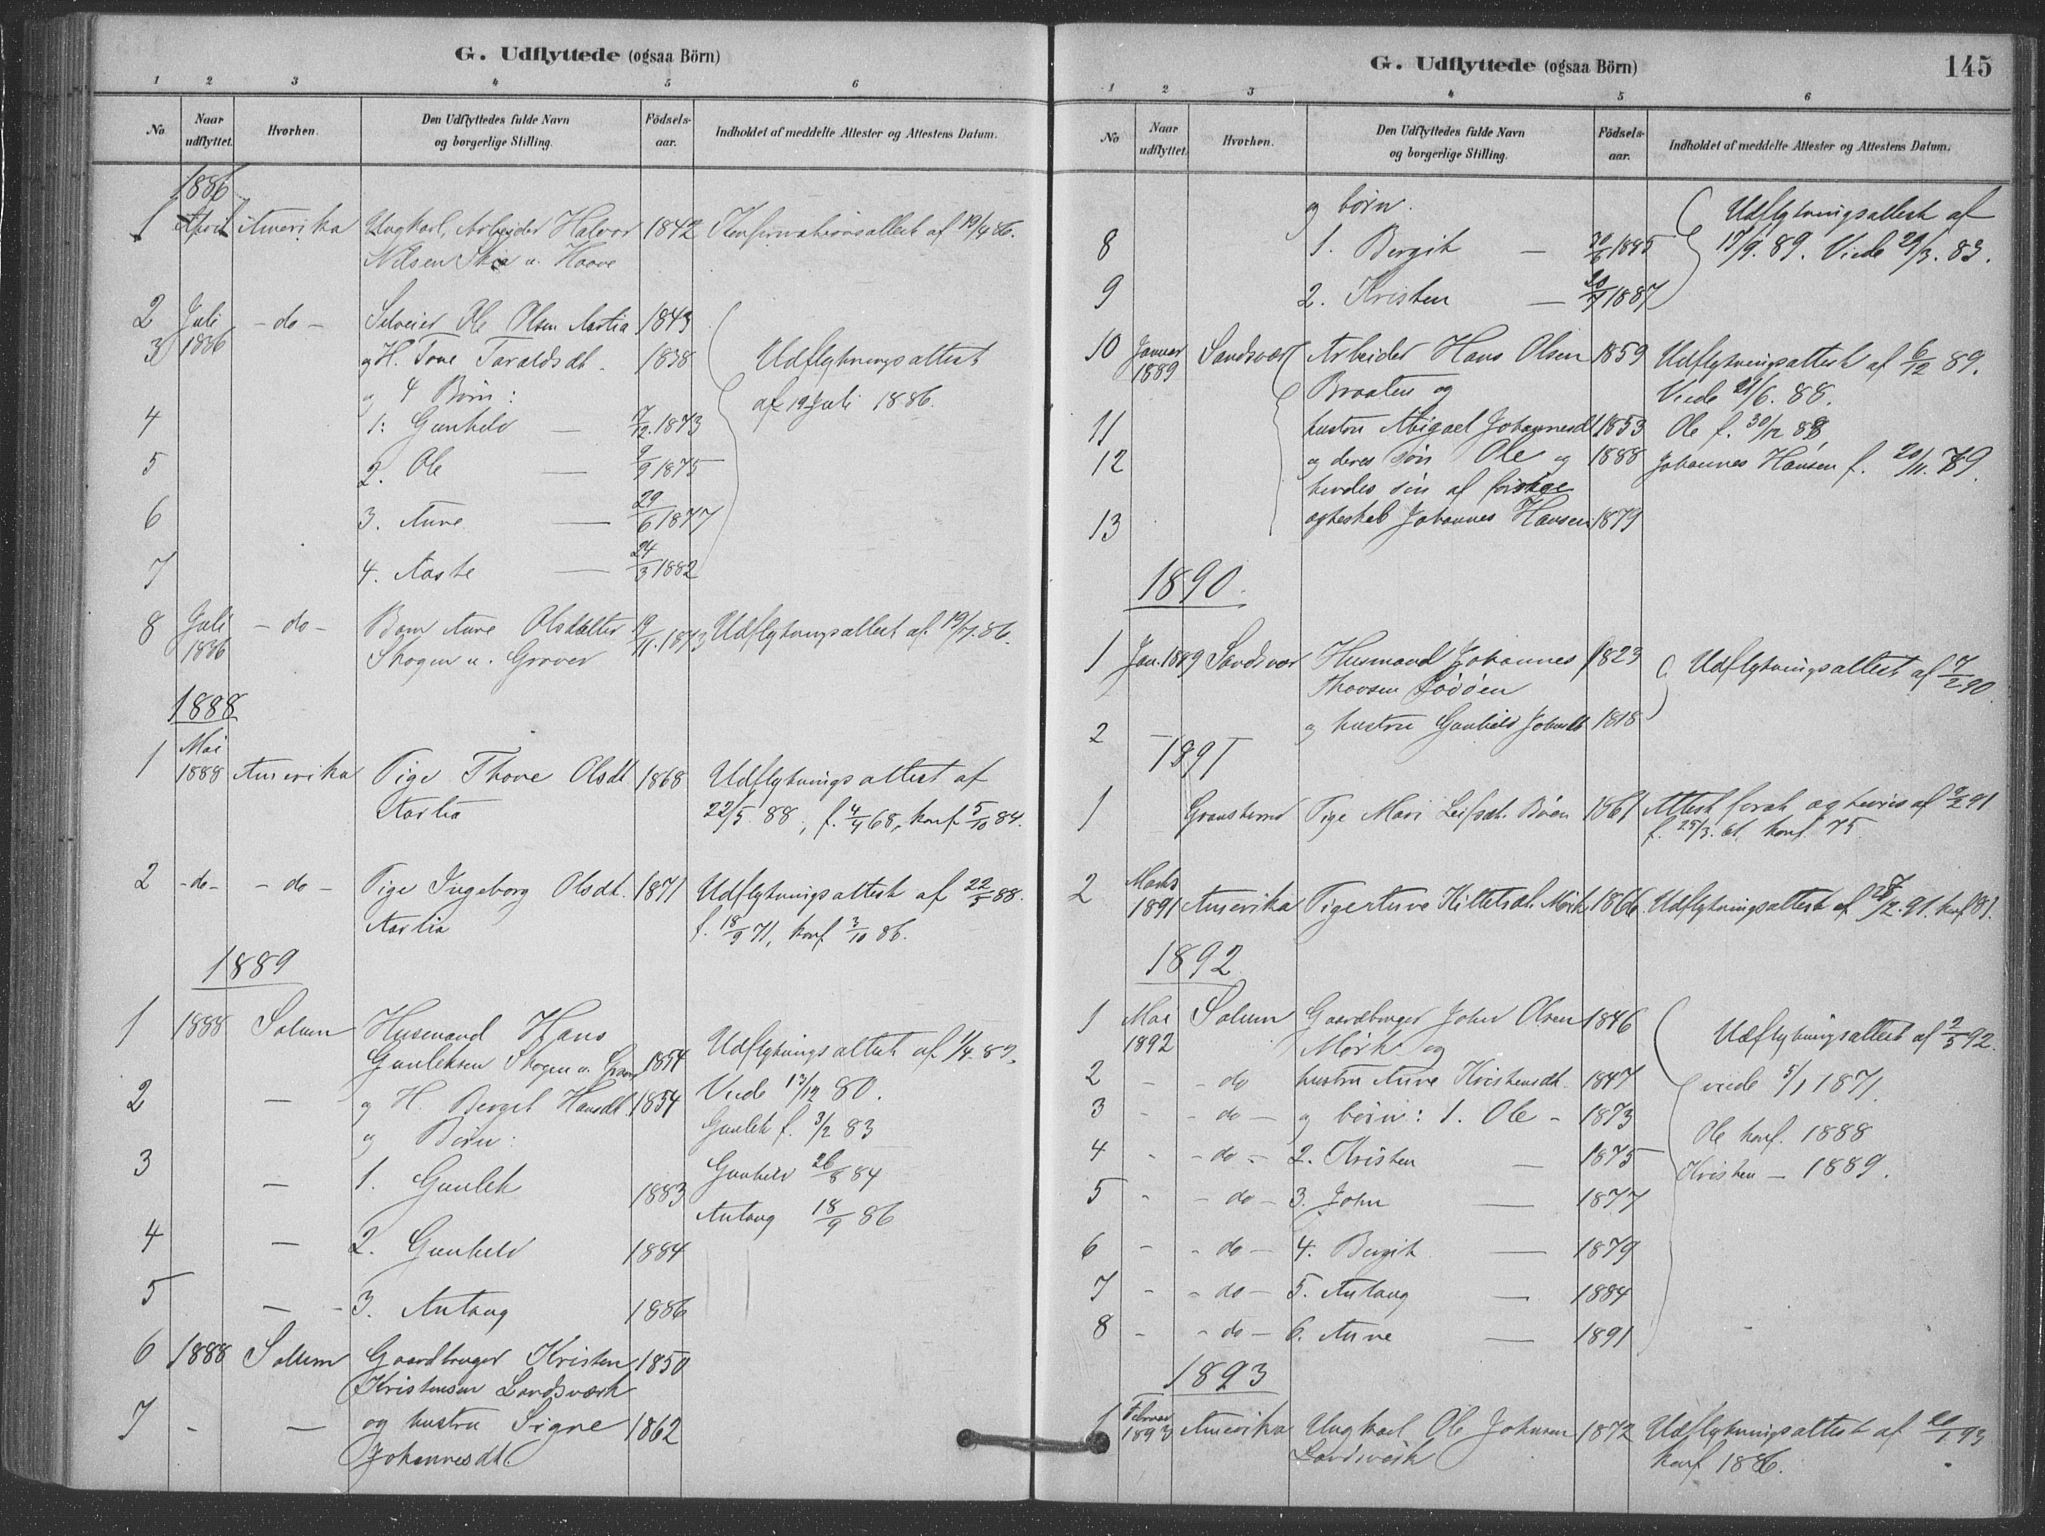 G. Udflyttede (ogsaa Börn)
1 2 3 4 5 6
No
Naar udflyttet.
Hvorhen.
Den Udflyttedes fulde Navn og borgerlige Stilling.
Födsels-aar.
Indholdet af meddelte Attester og Attestens Datum.
1886
1 April Amerika Ungkarl, Arbeider Halvor 1842 Konfirmationsattest af 19/4 86.
Nilsen Skia u. Haave
2 Juli 1886 - do - Selveier Ole Olsen Aaslia 1843
3 og H. Tone Taraldsdt. 1838 Udflytningsattest
og 4 Børn: af 19 Juli 1886.
4 1: Gunhild — 7/12 1873
5 2. Ole — 9/9 1875
6 3. Anne — 29/6 1877
7 4. Aaste — 24/3 1882
8 Juli 1886 - do - Anne Olsdatter 19/11 1843 Udflytningsattest af 19/7. 86.
Skogen u. Graver
1888
1 Mai 1888 Amerika Pige Thone Olsdt 1868 Udflytnings attest af
Aaslia 22/5. 88, f. 4/4 68, konf 5/10 84.
2 - do - - do - Pige Ingeborg Olsdt. 1871 Udflytningsattest af 22/5 88.
Aaslia f. 18/9 71, konf 3/10 86.
1889
1 1888 Solum Husmand Hans
Gunleksen Skogen u. Graver 1854 Udflytnings attest af 1/4. 89.
2 — og H. Bergit Hansdt. 1854 Viede 13/12 80.
og Børn: Gunlek f. 3/2 83
3 — 1. Gunlek 1883 Gunhild 26/8 84
4 — 2. Gunhild 1884 Antong 18/9 86
5 — - 3. Antong 1886
6 1888 Solum Gaardbruger Kristen 1850
Kristensen Landsværk
7 - — og hustru Signe 1862
Johannesdt.
G. Udflyttede (ogsaa Börn)
145
1 2 3 4 5 6
No
Naar udflyttet.
Hvorhen.
Den Udflyttedes fulde Navn og borgerlige Stilling.
Födsels-aar.
Indholdet af meddelte Attester og Attestens Datum.
og børn. Udflytningsattest af
8 1. Bergit — 1885 17/9. 89. Viede 29/3. 83.
9 2. Kristen — 1887
10 Januar 1889 Sandsvær Arbeider Hans Olsen 1859 Udflytningsattest af 6/12 89.
Braaten og Viede 21/6. 88.
11 hustru Abigael Johannesdt 1853 Ole f. 30/12 88,
12 og deres søn Ole og 1888 Johannes Hansen f. 20/11. 79.
hendes søn af forrige
13 ægteskab Johannes Hansen 1879
1890.
1 Jan. 1889 Sandsvær Husmand Johannes 1823 Udflytningsattest af 7/2 90
Thorsen
2 og hustru Gunhild Johnsdt 1818
1891
1 Gransherred Pige Mari Leifsdt. Bøen 1861 Attest forat ægtevies af 2/2 91
f. 25/3. 61, konf. 75.
2 Marts 1891 Amerika Pige Anne Kittelsdt. Mørk 1866 Udflytningsattest af 28/2. 91. konf 81.
1892
1 Mai 1892 Solum Gaardbruger John Olsen 1846 Udflytningsattest af 2/5 92.
Mørk og
2 - - do hustru Anne Kristensdt. 1847 viede 5/1 1871.
3 - - do - og børn: 1. Ole - 1873 Ole konf. 1888
4 - - do - 2. Kristen — 1875 Kristen — 1889.
5 - - do - 3. John — 1877
6 - - do - 4. Bergit — 1879
7 - - do - 5. Antong — 1884
8 - - do - 6. Anne — 1891
1893
1 Februar 1893 Amerika Ungkarl Ole Johnsen 1872 Udflytningsattest af 20/1 93
Landsværk konf 1886.